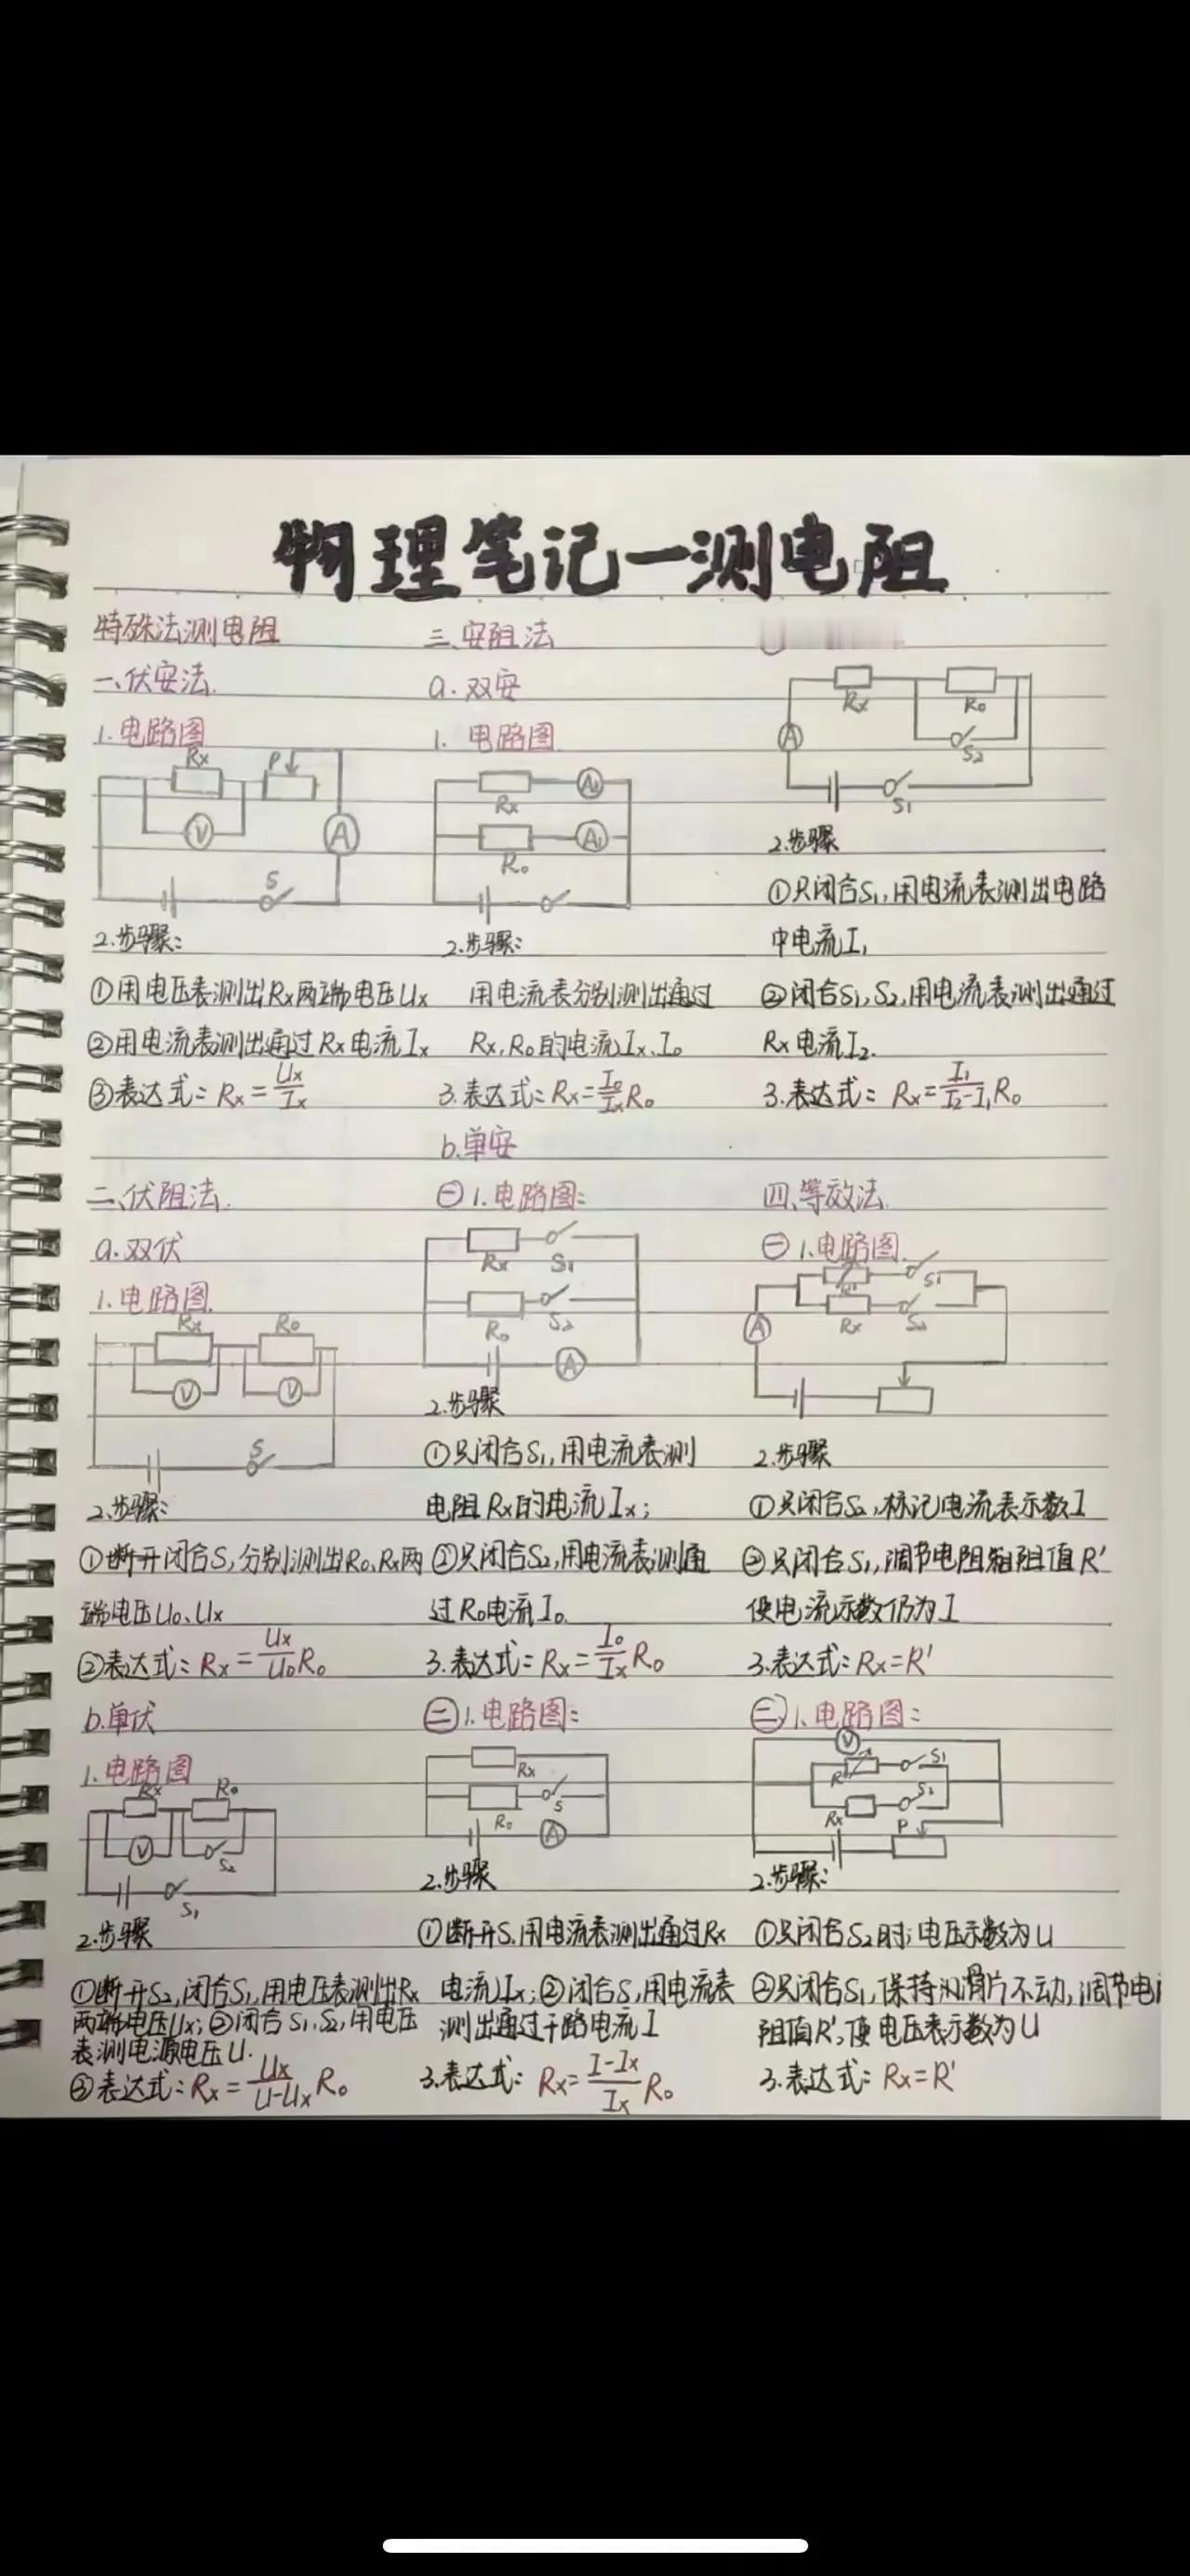 物理笔记一测电阻
特殊法测电阻
一、伏安法.
1.电路图
Rx
P
V
A
S
2.步骤:
①用电压表测出Rx两端电压Ux
②用电流表测出通过Rx电流Ix
③表达式: Rx=Ux/Ix
二、伏阻法.
a.双伏
1.电路图.
Rx
R₀
V
V
S
2.步骤:
①断开闭合S,分别测出R₀、Rx两
端电压U₀、Ux
②表达式: Rx=Ux/U₀R₀
b.单伏
1.电路图
Rx
R₀
V
S₂
S₁
2.步骤
①断开S₂,闭合S₁,用电压表测出Rx
两端电压Ux;②闭合S₁、S₂,用电压
表测电源电压U.
③表达式: Rx=Ux/U-Ux R₀
三、安阻法
a.双安
1. 电路图
Rx
R₀
2.步骤:
用电流表分别测出通过
Rx,R₀的电流Ix、I₀
3.表达式: Rx=I₀/Ix R₀
b.单安
㊀1.电路图:
Rx
S₁
R₀
S₂
A
2.步骤
①只闭合S₁,用电流表测
电阻Rx的电流Ix;
②只闭合S₂,用电流表测通
过R₀电流I₀.
3.表达式: Rx=I₀/Ix R₀
㊁1.电路图:
Rx
S
R₀
A
2.步骤
①断开S,用电流表测出通过Rx
电流Ix;②闭合S,用电流表
测出通过干路电流I
3.表达式: Rx=I-Ix/Ix R₀
Rx
R₀
A
S₂
S₁
2.步骤
①只闭合S₁,用电流表测出电路
中电流I₁
②闭合S₁,S₂,用电流表测出通过
Rx电流I₂.
3.表达式: Rx=I₁/I₂-I₁ R₀
四、等效法.
㊀1.电路图.
S₁
Rx
S₂
A
2.步骤
①只闭合S₂,标记电流表示数I
②只闭合S₁,调节电阻箱阻值R'
使电流示数仍为I
3.表达式: Rx=R'
㊁1.电路图:
V
S₁
R
S₂
Rx
P
2.步骤:
①只闭合S₂时;电压示数为U
②只闭合S₁,保持滑片不动,调节电
阻值R',使电压表示数为U
3.表达式: Rx=R'